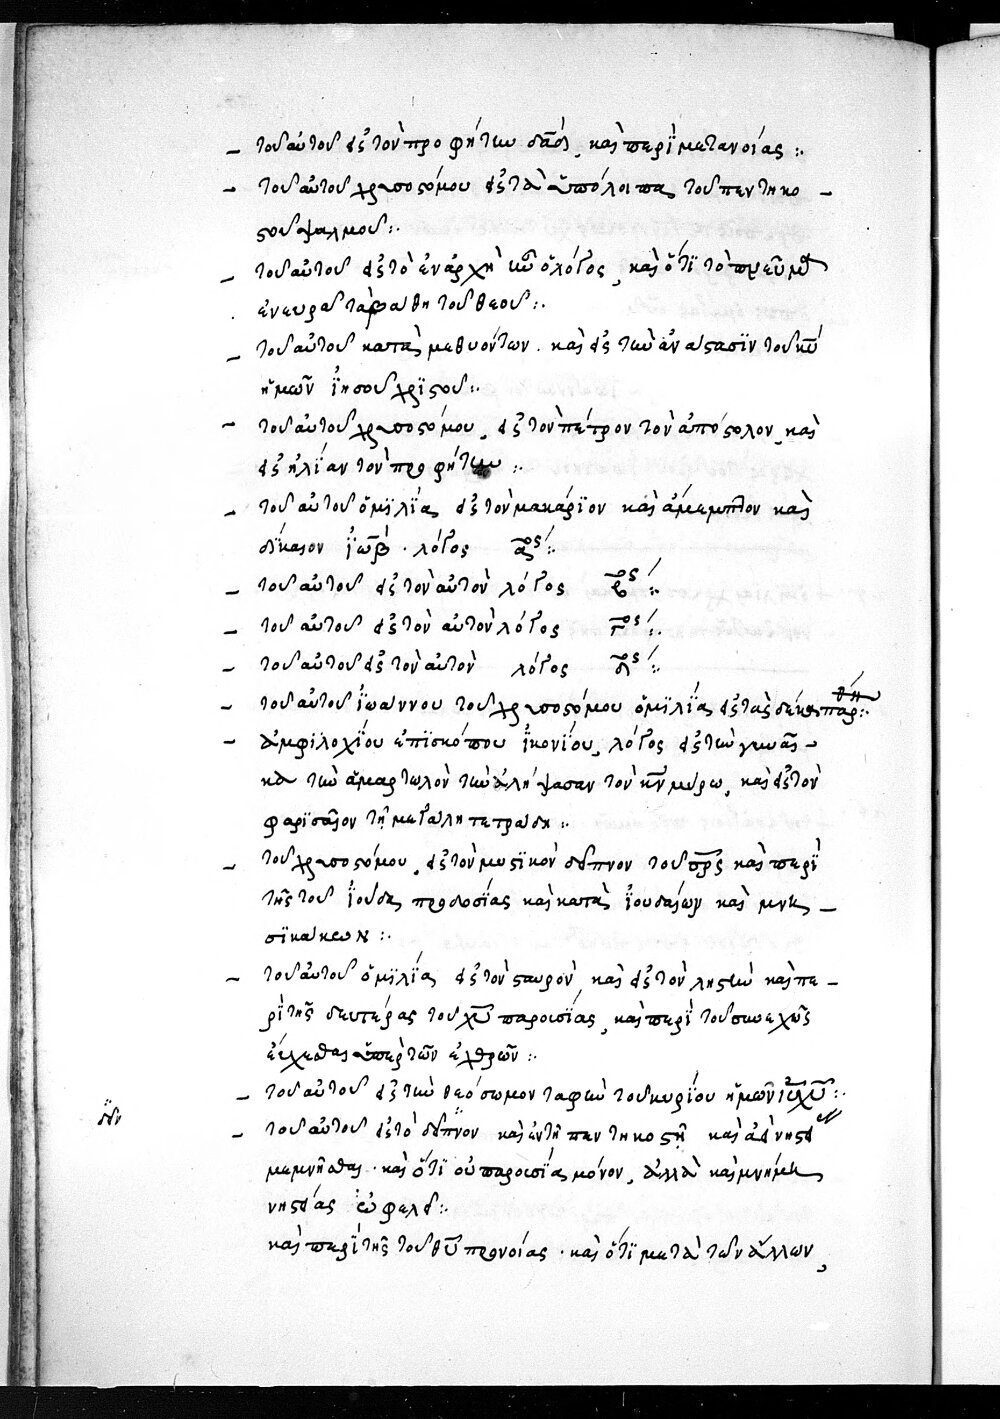 – τοῦ αὐτοῦ εἰς τὸν προφήτην δαδ, καὶ περὶ μετανοίας :·
– τοῦ αὐτοῦ χρυσοστόμου εἰς τὰ ὑπόλοιπα τοῦ πεντηκο –
στοῦ ψαλμοῦ :·
– τοῦ αὐτοῦ εἰς τὸ ἐν ἀρχῆ ἦν ὁ λόγος, καὶ ὅτι τὸ πνεῦμα
ἐνευρᾶ τὰ βάθη τοῦ θεοῦ :·
– τοῦ αὐτοῦ κατὰ μεθυόντων. καὶ εἰς τὴν ἀνάστασϊν τοῦ κυ
ἡμῶν ἰησοῦ χρϊστοῦ :·
– τοῦ αὐτοῦ χρυσοστόμου, εἰς τὸν πέτρον τὸν ἀπόστολον, καὶ
εἰς ἠλίαν τὸν προφήτην :·
– τοῦ αὐτοῦ ὁμϊλϊα εἰς τὸν μακάρϊον καὶ ἄμεμπτον καὶ
δίκαιον ἰὼβ · λόγος αος :·
– τοῦ αὐτοῦ εἰς τὸν αὐτὸν λόγος βος :·
– τοῦ αὐτοῦ εἰς τὸν αὐτὸν λόγος γος :·
– τοῦ αὐτοῦ εἰς τὸν αὐτὸν λόγος δος :·
– τοῦ αὐτοῦ ἰωάννου τοῦ χρυσοστόμου ὁμϊλϊα εἰς τὰς δέκα παρ :·
– ἀμφιλοχΐου ἐπϊσκόπου ἰκονΐου, λόγος εἰς τὴν γυναῖ –
κα τὴν ἁμαρτωλὸν τὴν ἀλήψασαν τὸν κν μύρω, καὶ εἰς τὸν
φαρϊσαῖον τῆ μεγάλη τετράδη :·
– τοῦ χρυσοστόμου, εἰς τὸν μυστϊκὸν δεῖπνον τοῦ πρς καὶ περὶ
τῆς τοῦ ἰούδα προδοσΐας καὶ κατὰ ἰουδαίων καὶ μνη –
σϊκάκων :·
– τοῦ αὐτοῦ ὁμϊλϊα εἰς τὸν σταυρὸν, καὶ εἰς τὸν ληστὴν καὶ πε –
ρὶ τῆς δευτέρας τοῦ χυ παροισΐας, καὶ περὶ τοῦ συνεχῶς
εὔχεσθαι ὑπὲρ τῶν ἐχθρῶν :·
– τοῦ αὐτοῦ εἰς τὴν θεόσωμον ταφὴν τοῦ κυρΐου ἡμῶν ιυ χυ :·
– τοῦ αὐτοῦ εἰς τὸ δεῖπνον καὶ ἐν τῆ πεντηκοστῆ καὶ
μεμνῆσθαι · καὶ ὅτϊ οὐ παροισΐα μόνον, ἀλλὰ καὶ μνήμη
νηστείας ὠφελεῖ :·
καὶ περὶ τῆς τοῦ θυ προνοίας · καὶ ὅτϊ μετὰ τῶν ἄλλων,